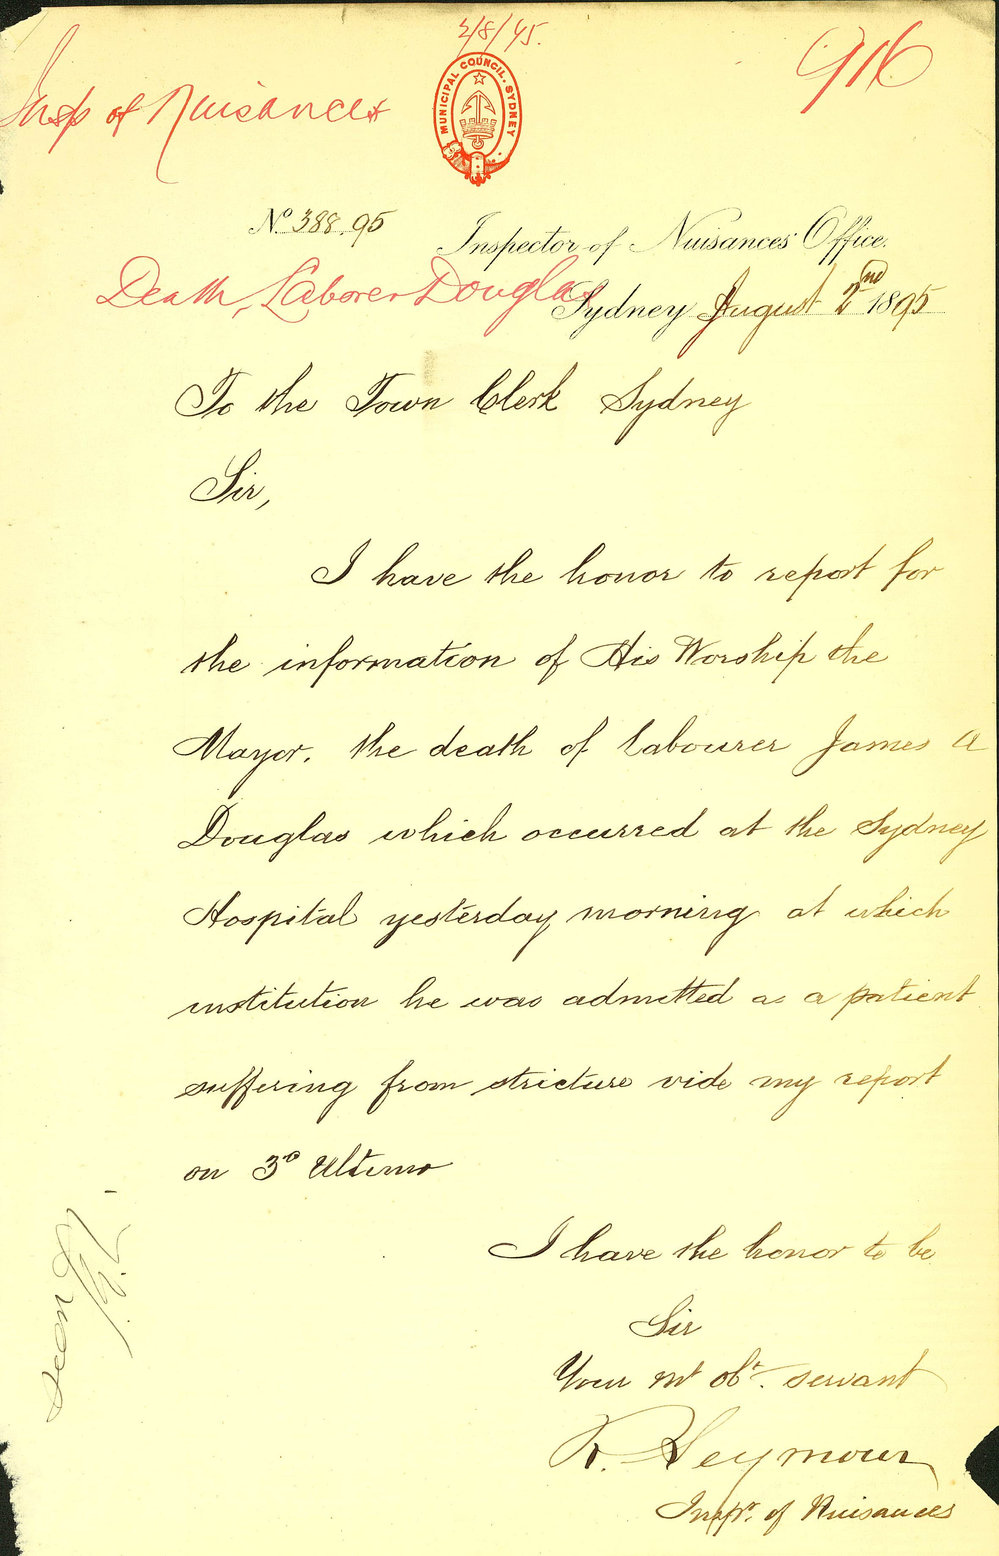 2/8/95.
916
Insp of Nuisances
MUNICIPAL COUNCIL. SYDNEY
No. 388.95
Inspector of Nuisances' Office.
Death, Laborer Douglas
Sydney August 2nd 1895
To the Town Clerk Sydney
Sir,
I have the honor to report for
the information of His Worship the
Mayor. the death of Labourer James A
Douglas which occurred at the Sydney
Hospital yesterday morning at which
institution he was admitted as a patient
suffering from stricture vide my report
on 3o Ultimo
I have the honor to be
Sir
Your mt obt. servant
R. Seymour
Inspr. of Nuisances
Seen